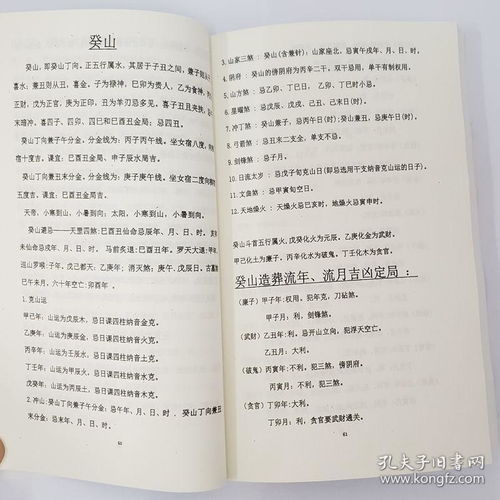 癸山
癸山，即癸山丁向。正五行属水，其居于子丑之间，兼子则从
喜水；兼丑则从丑，喜金。子为禄神，巳卯为贵人，乙为食神，丙
正财，戊为正官，庚为正印，丑为羊刃忌多见。喜子丑且夹拱，
末暗冲。喜四子、四卯、四巳和巳酉丑金局；忌四丑。
癸山丁向兼子午分金，分金线为：丙子丙午线。坐女宿八度，
宿十度吉。课宜：巳酉丑金局、申子辰水局吉。
癸山丁向兼丑未分金。分金线为：庚子庚午线。坐女宿二度向
五度吉，课宜：巳酉丑金局吉。
天帝，小寒到山，小暑到向；太阳，小寒到山，小暑到向。
癸山避忌——天罡四煞：巳酉丑仙命忌辰年、月、日、时。
未仙命忌戌年、月、日、时。马前炙退：巳酉丑年。罗天大退：甲年
巡山罗喉：子年。戊己都天；乙庚年；消灭煞：庚午、戊辰日。古墓
巳午未月，六十年空亡：卯酉年。
1.克山运
甲己年：山运为戊辰木，忌日课四柱纳音金克。
乙庚年：山运为庚辰金，忌日课四柱纳音火克。
丙辛年：山运为壬辰水，忌日课四柱纳音土克。
丁壬年：山运为甲辰火，忌日课四柱纳音水克。
戊癸年：山运为丙辰土，忌日课四柱纳音木克。
2.冲山：癸山丁向兼子午分金：忌午年、月、日、时。癸山丁向兼丑
末分金：忌未年、月、日、时。
61
3.山家三煞：癸山(含兼针)：山家座北，忌寅午戌年、月、日、时。
4.阴府：癸山的傍阴府为丙辛二干，双干忌用，单干有制权用。
5.山方煞：忌乙卯、丁巳日，乙卯、丁巳时小忌。
6.星曜煞：忌戊辰，戊戌、己丑、己未日(时)。
7.冲丁煞：癸山兼子，忌丙午日(时)；癸山兼丑，忌庚午日(时)
8.弓箭煞：忌丑未二支全，单支不忌。
9.剑锋煞：忌子月。
10.日流太岁：忌戊子旬克山日(即忌选用干支纳音克山运的日子)。
11.文曲煞：忌甲寅旬空日。
12.天地燥火：天燥火忌巳亥时，地燥火忌寅申时。
癸山斗首五行属火，戊癸化火为元辰，乙庚化金为武财。
甲己化土为廉子，丙辛化水为破鬼，丁壬化木为贪官。
癸山造葬流年、流月吉凶定局：
(廉子) 甲子年：权用，犯年克，刀砧煞。
甲子月：利，剑锋煞。
(武财) 乙丑年：利。忌开山立向，犯浮天空亡。
乙丑月：大利。
(破鬼) 丙寅年：不利。犯三煞，傍阴府。
丙寅月：不利，犯三煞。
(贪官) 丁卯年：大利。
丁卯月：利，贪官要武财通关。
61
孔夫子旧书网
www.kongfz.com